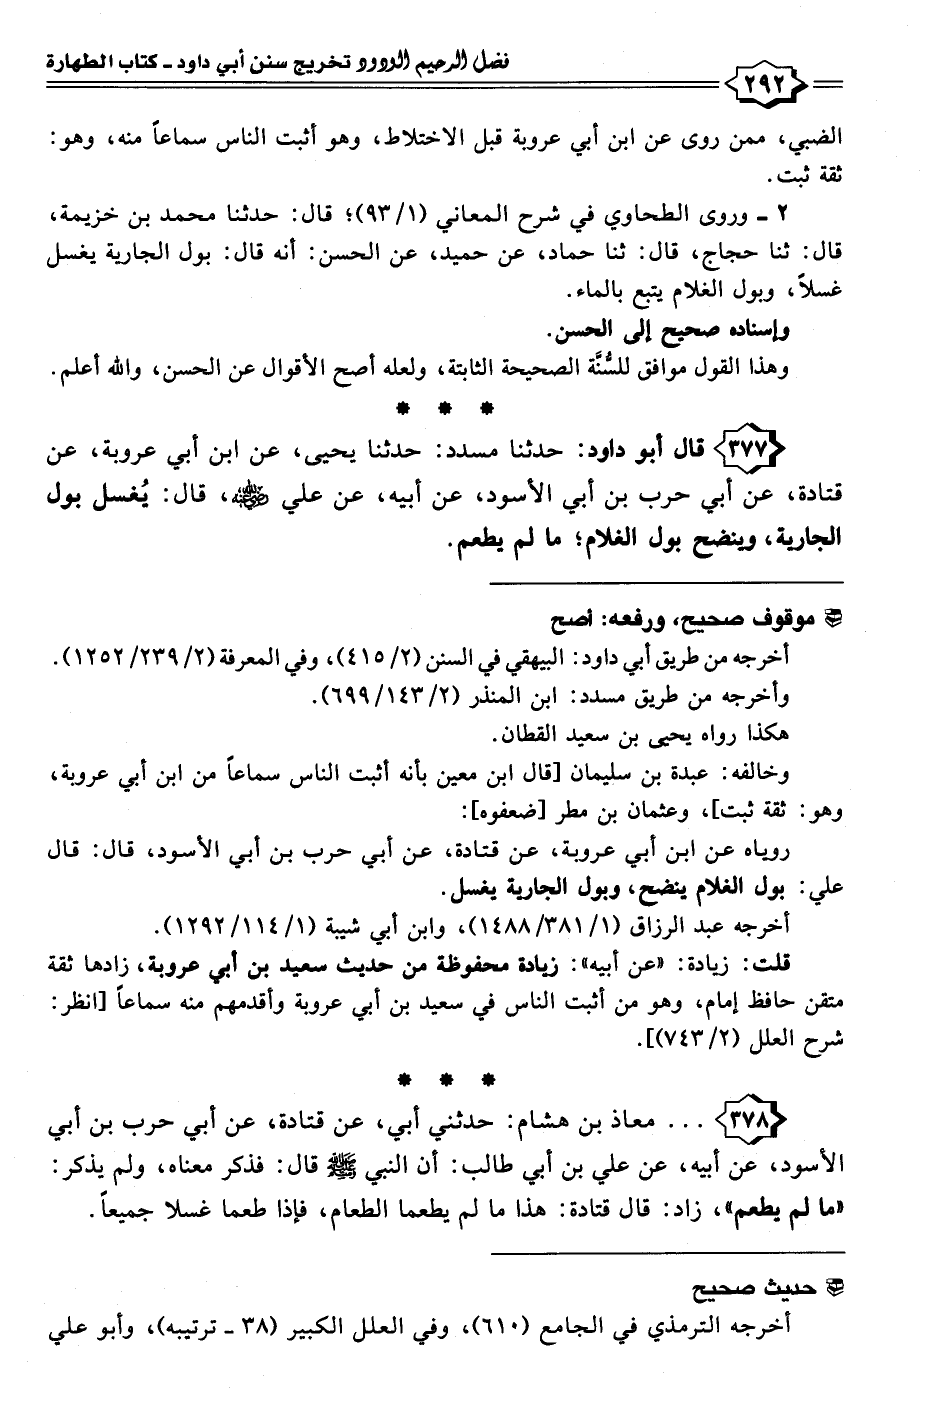 فضل الرحيم الودود تخريج سنن أبي داود ـ كتاب الطهارة
٢٩٢
الضبي، ممن روى عن ابن أبي عروبة قبل الاختلاط، وهو أثبت الناس سماعاً منه، وهو:
ثقة ثبت.
٢ ـ وروى الطحاوي في شرح المعاني (٩٣/١)؛ قال: حدثنا محمد بن خزيمة،
قال: ثنا حجاج، قال: ثنا حماد، عن حميد، عن الحسن: أنه قال: بول الجارية يغسل
غسلاً، وبول الغلام يتبع بالماء.
وإسناده صحيح إلى الحسن.
وهذا القول موافق للسُّنَّة الصحيحة الثابتة، ولعله أصح الأقوال عن الحسن، والله أعلم.
* * *
٣٧٧ قال أبو داود: حدثنا مسدد: حدثنا يحيى، عن ابن أبي عروبة، عن
قتادة، عن أبي حرب بن أبي الأسود، عن أبيه، عن علي رضي الله عنه، قال: يُغسل بول
الجارية، وينضح بول الغلام؛ ما لم يطعم.
موقوف صحيح، ورفعه: أصح
أخرجه من طريق أبي داود: البيهقي في السنن (٤١٥/٢)، وفي المعرفة (١٢٥٢/٢٣٩/٢).
وأخرجه من طريق مسدد: ابن المنذر (٦٩٩/١٤٣/٢).
هكذا رواه يحيى بن سعيد القطان.
وخالفه: عبدة بن سليمان [قال ابن معين بأنه أثبت الناس سماعاً من ابن أبي عروبة،
وهو: ثقة ثبت]، وعثمان بن مطر [ضعفوه]:
روياه عن ابن أبي عروبة، عن قتادة، عن أبي حرب بن أبي الأسود، قال: قال
علي: بول الغلام ينضح، وبول الجارية يغسل.
أخرجه عبد الرزاق (١٤٨٨/٣٨١/١)، وابن أبي شيبة (١٢٩٢/١١٤/١).
قلت: زيادة: «عن أبيه»: زيادة محفوظة من حديث سعيد بن أبي عروبة، زادها ثقة
متقن حافظ إمام، وهو من أثبت الناس في سعيد بن أبي عروبة وأقدمهم منه سماعاً [انظر:
شرح العلل (٧٤٣/٢)].
* * *
٣٧٨ . . . معاذ بن هشام: حدثني أبي، عن قتادة، عن أبي حرب بن أبي
الأسود، عن أبيه، عن علي بن أبي طالب: أن النبي ﷺ قال: فذكر معناه، ولم يذكر:
«ما لم يطعم»، زاد: قال قتادة: هذا ما لم يطعما الطعام، فإذا طعما غسلا جميعاً.
حديث صحيح
أخرجه الترمذي في الجامع (٦١٠)، وفي العلل الكبير (٣٨ ـ ترتيبه)، وأبو علي